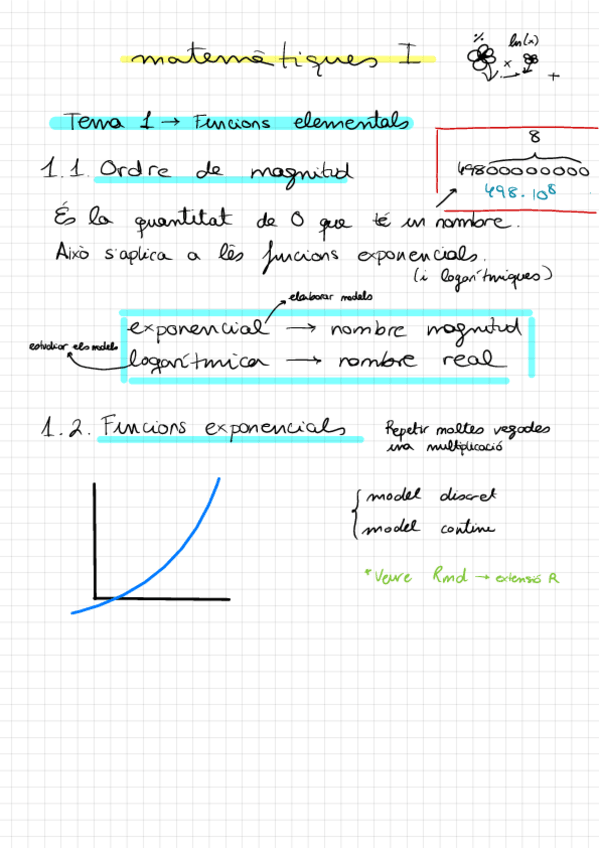 matemàtiques I
% ln(x)
x
+
Tema 1 → Funcions elementals
8
49800000000
498.10⁸
1.1. Ordre de magnitud
És la quantitat de 0 que té un nombre.
Això s'aplica a les funcions exponencials.
(i logarítmiques)
elaborar models
exponencial → nombre magnitud
estudiar els models
logarítmica → nombre real
1.2. Funcions exponencials
Repetir moltes vegades
una multiplicació
model discret
model continu
*Veure Rmd → extensió R